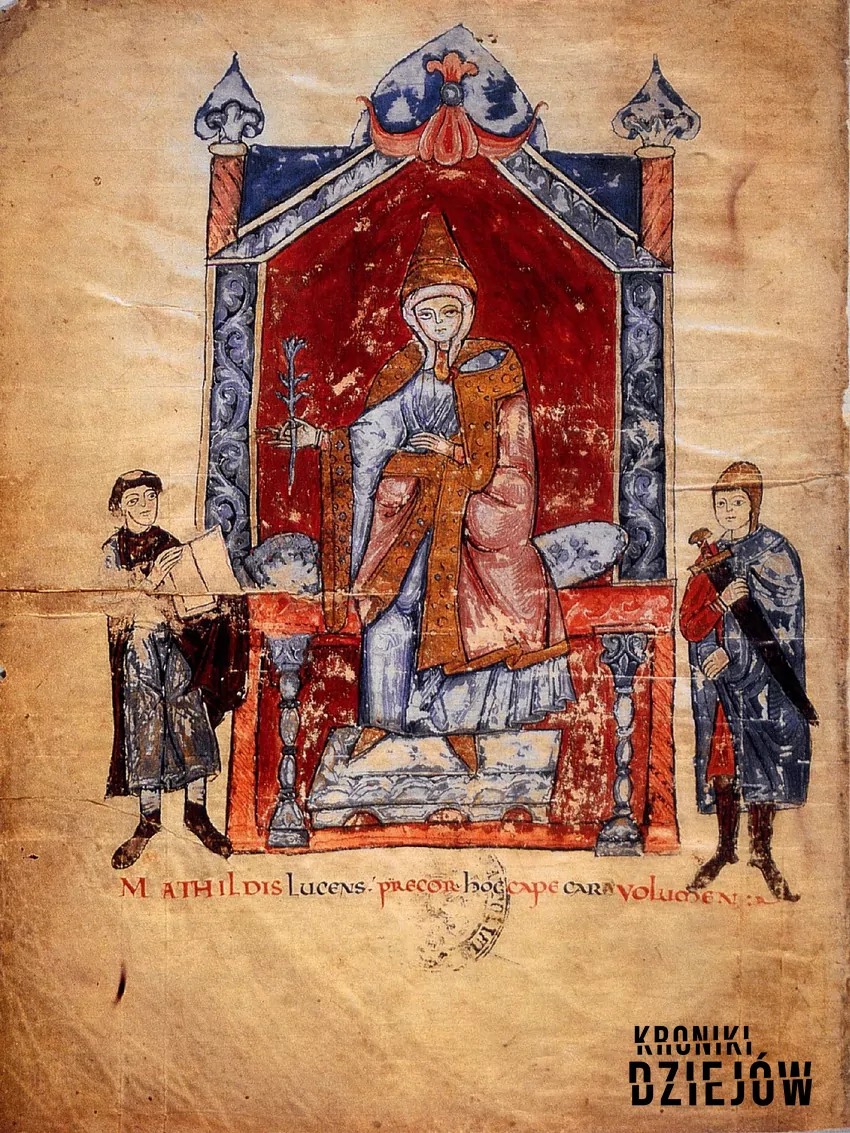 MATHILDIS LUCENS· PRECOR hOC CAPE CARA VOLUMEN:
KRONIKI
DZIEJÓW